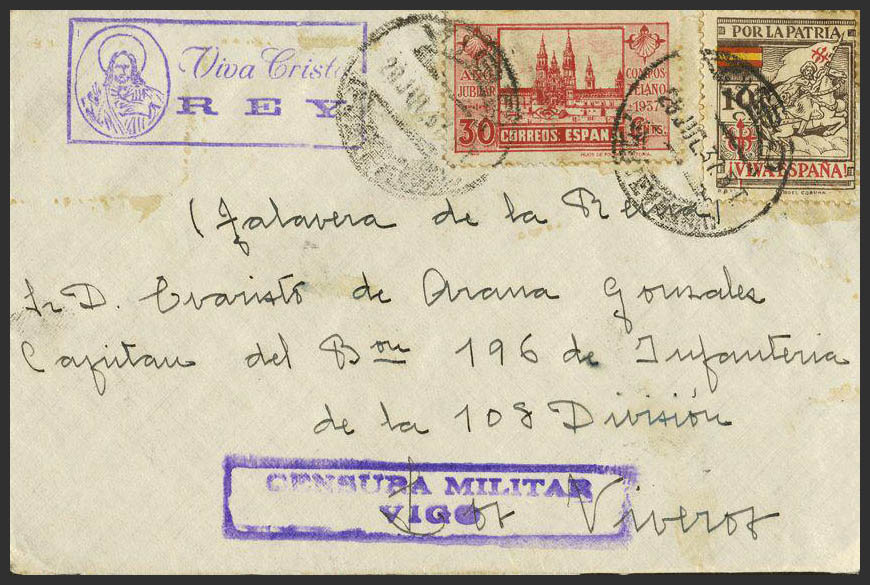 Viva Cristo
REY
AÑO
JUBILAR
COMPOS
TELANO
1937
30 CORREOS: ESPAÑA Cts.
POR LA PATRIA
10
¡VIVA ESPAÑA!
28 JUL 37
(Talavera de la Reina)
Sr D. Evaristo de Arana Gonzales
Capitan del Bon 196 de Infanteria
de la 108 División
CENSURA MILITAR
VIGO
Los Viveros